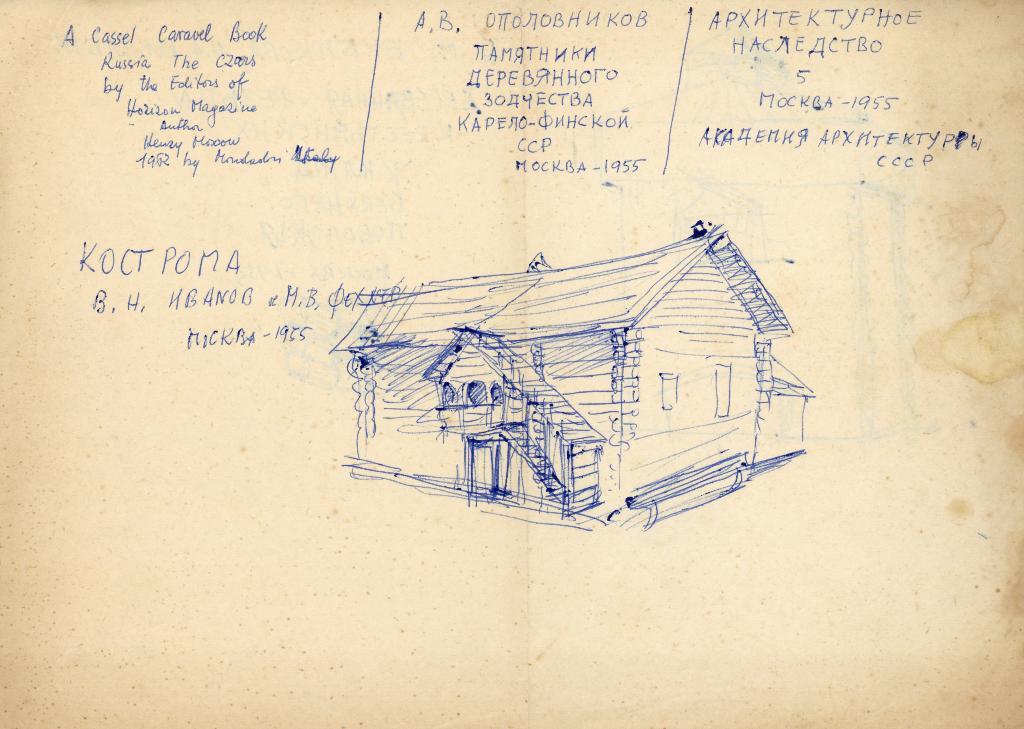 A Cassel Caravel Book
Russia The Czars
by the Editors of
Horizon Magazine
Author
Henry Moscow
1962 by Mondadori
А.В. ОПОЛОВНИКОВ
ПАМЯТНИКИ
ДЕРЕВЯННОГО
ЗОДЧЕСТВА
КАРЕЛО-ФИНСКОЙ
ССР
МОСКВА-1955
АРХИТЕКТУРНОЕ
НАСЛЕДСТВО
5
МОСКВА-1955
АКАДЕМИЯ АРХИТЕКТУРЫ
СССР
КОСТРОМА
В. Н. ИВАНОВ и М.В.
МОСКВА-1955